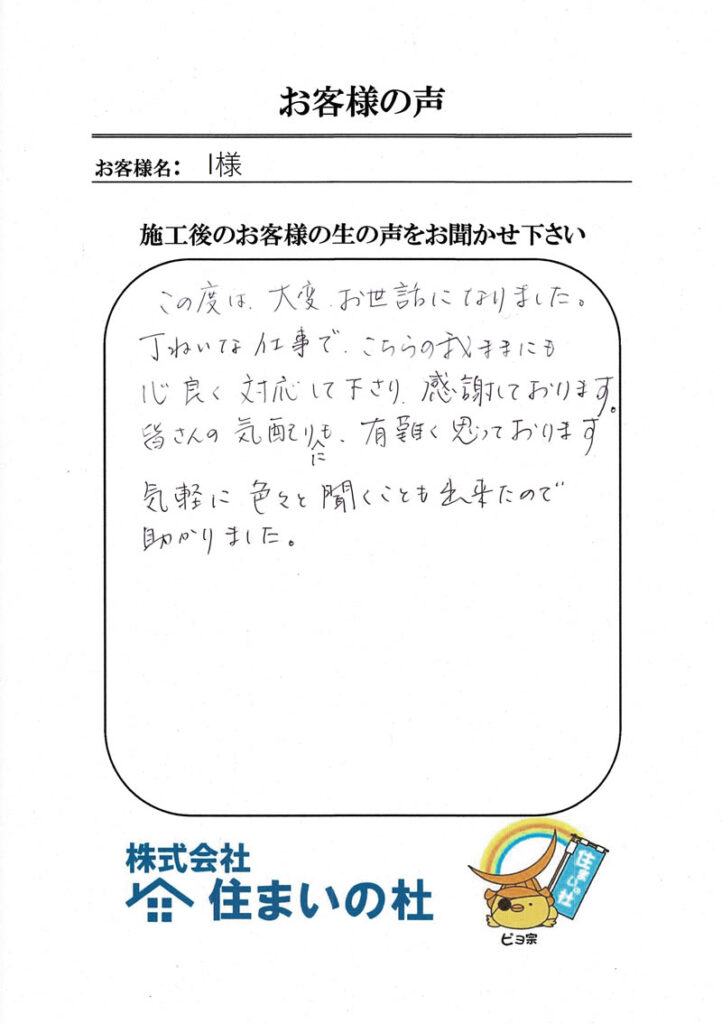 お客様の声
お客様名: I様
施工後のお客様の生の声をお聞かせ下さい
この度は、大変、お世話になりました。
丁ねいな仕事で、こちらの我ままにも
心良く対応して下さり、感謝しております。
皆さんの気配りにも、有難く思っております
気軽に色々と聞くことも出来たので
助かりました。
株式会社
住まいの杜
住まいの杜
ピヨ宗